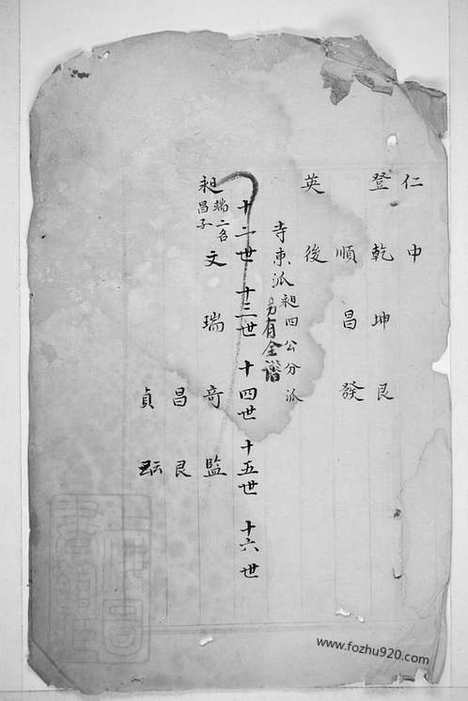 仁申
登乾坤艮
順昌發
英後
寺東派昶四公分派
另有全譜
十二世 十三世 十四世 十五世 十六世
昶 端二名 昌子 文瑞奇監
昌艮
貞
www.fozhu920.com